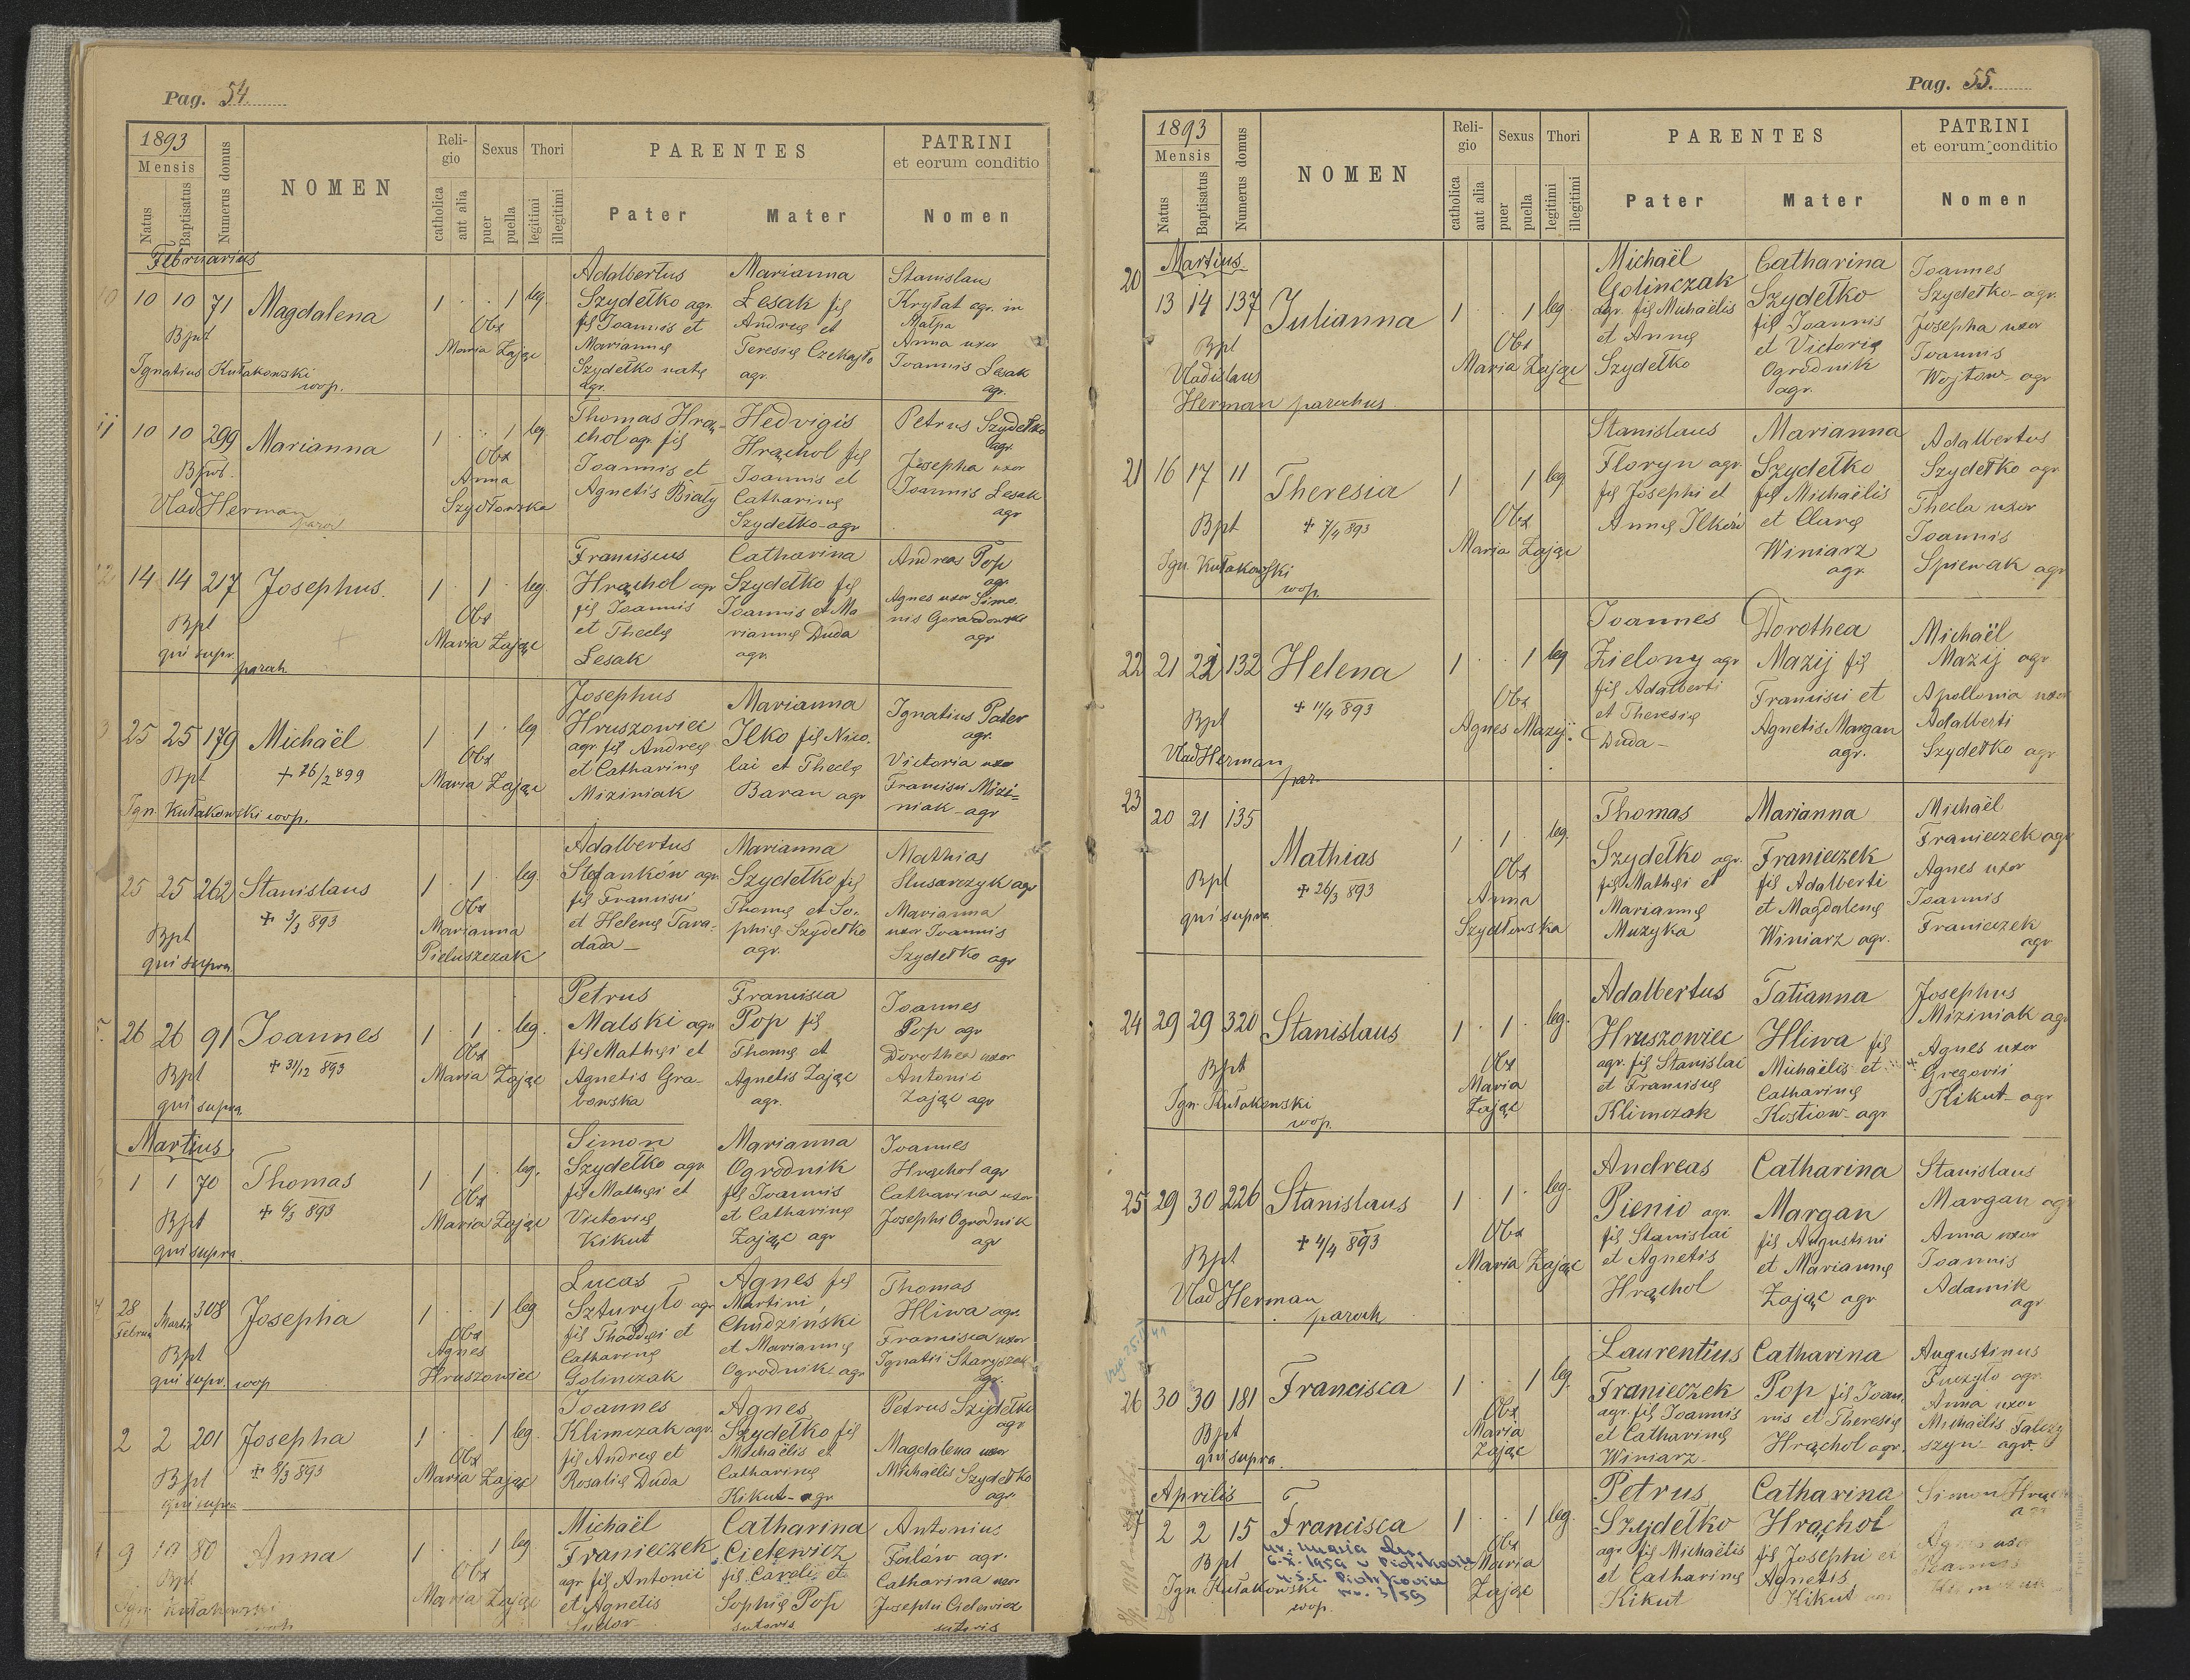 Pag. 54.
1893
Mensis
Natus
Baptisatus
Numerus domus
NOMEN
Religio
catholica
aut alia
Sexus
puer
puella
Thori
legitimi
illegitimi
PARENTES
Pater
Mater
PATRINI
et eorum conditio
Nomen
Februarius
10 10 10 71 Magdalena 1 . . 1 leg.
Bpt
Ignatius Kułakowski
coop.
Obs
Maria Zając
Adalbertus
Szydełko agr.
fil Joannis et
Mariannę
Szydełko natę
agr.
Marianna
Lesak fil
Andreę et
Teresię Czekajło
agr.
Stanislaus
Kryłat agr. in
Malpa
Anna uxor
Joannis Lesak
agr.
11 10 10 299 Marianna 1 . . 1 leg
Bpt.
Vlad Herman
paroch
Obs
Anna
Szydłowska
Thomas Hrą-
chol agr. fil
Joannis et
Agnetis Biały
Hedvigis
Hrąchol fil
Joannis et
Catharinę
Szydełko agr
Petrus Szydełko
agr.
Josepha uxor
Joannis Lesak
agr
12 14 14 217 Josephus. 1 . 1 . leg.
Bpt
qui supr.
paroh
Obs
Maria Zając
Franciscus
Hrąchol agr
fil Joannis
et Theclę
Lesak
Catharina
Szydełko fil
Joannis et Ma
riannę Duda
agr.
Andreas Pop
agr.
Agnes uxor Simo.
nis
agr
3 25 25 179 Michaël 1 . 1 . leg
Bpt + 26/2 899
Ign. Kułakowski coop.
Obs
Maria Zając
Josephus
Hruszowiec
agr. fil Andreę
et Catharinę
Miziniak
Marianna
Ilko fil Nico.
lai et Theclę
Baran agr
Ignatius Pater
agr.
Victoria uxor
Francisci Mizi-
niak agr
25 25 262 Stanislaus 1 . 1 . leg.
Bpt + 3/3 893
qui supra
Obs
Marianna
Pieluszczak
Adalbertus
Stefanków agr.
fil Francisci
et Helenę Tara-
dada
Marianna
Szydełko fil
Thomę et So.
phię Szydełko
agr.
Mathias
Slusarczyk agr
Marianna
uxor Joannis
Szydełko agr
5. 26 26 91 Joannes 1 . 1 . leg.
Bpt + 31/12 893
qui supra
Obs
Maria Zając
Petrus
Malski agr
fil Mathęi et
Agnetis Gra-
bowska
Francisca
Pop fil
Thomę et
Agnetis Zając
agr.
Joannes
Pop agr
Dorothea uxor
Antonii
Zając agr
Martius
1 1 70 Thomas 1 . 1 . leg.
Bpt + 6/3 893
qui supra
Obs
Maria Zając
Simon
Szydełko agr
fil Mathęi et
Victorię
Kikut
Marianna
Ogrodnik
fil Joannis
et Catharinę
Zając agr
Joannes
Hrąchol agr
Catharina uxor
Josephi Ogrodnik
agr
28 Februa 1 Martii 308 Josepha 1 . . 1 leg
Bpt
qui supr. coop
Obs
Agnes
Hruszowiec
Lucas
Szturyło agr
fil Thaddęi et
Catharinę
Golinczak
Agnes fil
Martini
Chudzinski
et Mariannę
Ogrodnik agr
Thomas
Hliwa agr.
Francisca uxor
Ignatii
agr.
2 2 201 Josepha 1 . . 1 leg.
Bpt + 8/3 893
qui supra
Obs
Maria Zając
Joannes
Klimczak agr.
fil Andreę et
Rosalię Duda
Agnes
Szydełko fil
Michaëlis et
Catharinę
Kikut - agr
Petrus Szydełko
agr
Magdalena uxor
Michaëlis Szydełko
agr.
9 10 80 Anna 1 . . 1 leg
Bpt
Ign. Kułakowski
Obs
Maria Zając
Michaël
Franieczek
agr fil Antonii
et Agnetis
Sutor
Catharina
Cielewicz
fil Caroli et
Sophię Pop
sutoris
Antonius
agr.
Catharina uxor
Josephi Cielewicz
sutoris
Pag. 55.
1893
Mensis
Natus
Baptisatus
Numerus domus
NOMEN
Religio
catholica
aut alia
Sexus
puer
puella
Thori
legitimi
illegitimi
PARENTES
Pater
Mater
PATRINI
et eorum conditio
Nomen
Martius
20 13 14 137 Julianna 1 . . 1 leg
Bpt
Vladislaus
Herman parochus
Obs
Maria Zając
Michaël
Golinczak
agr. fil Michaëlis
et Annę
Szydełko
Catharina
Szydełko
fil Joannis
et Victorię
Ogrodnik
agr.
Joannes
Szydełko agr.
Josepha uxor
Joannis
Wojtow agr
21 16 17 11 Theresia 1 . . 1 leg.
Bpt + 7/4 893
Ign. Kułakowski
coop.
Obs
Maria Zając
Stanislaus
Floryn agr.
fil Josephi et
Annę Ilków
Marianna
Szydełko
fil Michaëlis
et Clarę
Winiarz
agr.
Adalbertus
Szydełko agr
Thecla uxor
Joannis
Spiewak agr
22 21 22 132 Helena 1 . . 1 leg
Bpt + 11/4 893
Vlad Herman
par.
Obs
Agnes Mazij
Joannes
Zielony agr
fil Adalberti
et Theresię
Duda
Dorothea
Mazij fil
Francisci et
Agnetis Margan
agr.
Michaël
Mazij agr
Apollonia uxor
Adalberti
Szydełko agr
23 20 21 135 Mathias 1 . 1 . leg.
Bpt + 26/3 893
qui supra
Obs
Anna
Szydłowska
Thomas
Szydełko agr.
fil Mathęi et
Mariannę
Muzyka
Marianna
Franieczek
fil Adalberti
et Magdalenę
Winiarz agr.
Michaël
Franieczek agr
Agnes uxor
Joannis
Franieczek
agr
24 29 29 320 Stanislaus 1 . 1 . leg.
Bpt
Ign. Kułakowski
coop.
Obs
Maria
Zając
Adalbertus
Hruszowiec
agr. fil Stanislai
et Franciscę
Klimczak
Tatianna
Hliwa fil
Michaëlis et
Catharinę
Kostiow agr
Josephus
Miziniak agr
Agnes uxor
+ Gregorii
Kikut agr
25 29 30 226 Stanislaus 1 . 1 . leg.
Bpt + 4/4 893
Vlad Herman
paroch
Obs
Maria Zając
Andreas
Pienio agr.
fil Stanislai
et Agnetis
Hrąchol
Catharina
Margan
fil Augustini
et Mariannę
Zając agr
Stanislaus
Margan agr
Anna uxor
Joannis
Adamik
agr
26 30 30 181 Francisca 1 . . 1 leg
Bpt
qui supra
Obs
Maria
Zając
Laurentius
Franieczek
agr. fil Joannis
et Catharinę
Winiarz
Catharina
Pop fil Joan.
nis et Theresię
Hrąchol agr.
Augustinus
Puczyło agr.
Anna uxor
Michaëlis Falczy
szyn agr.
Aprilis
2 2 15 Francisca 1 . . 1 leg.
Bpt
6.X.1959 u
u.s.c.
nr. 3/59
Ign Kułakowski
coop.
Obs
Maria
Zając
Petrus
Szydełko
agr fil Michaëlis
et Catharinę
Kikut
Catharina
Hrąchol
fil Josephi et
Agnetis
Kikut
Simon
uxor